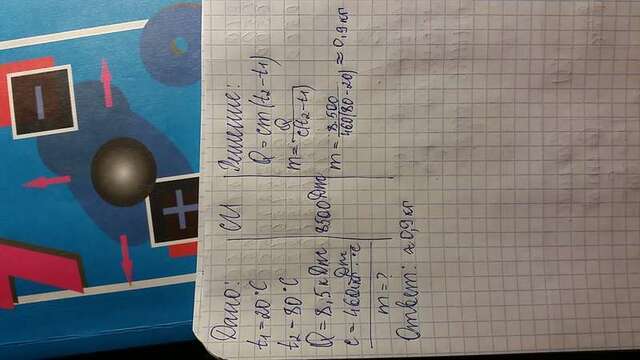 7
−
+
Дано:
t₁=20°C
t₂=80°C
Q=8,5 кДж
c=460 Дж/кг·°C
m=?
СИ
8500 Дж
Решение:
Q=cm(t₂-t₁)
m=Q/c(t₂-t₁)
m=8 500/460(80-20)≈0,9 кг
Ответ: ≈0,9 кг